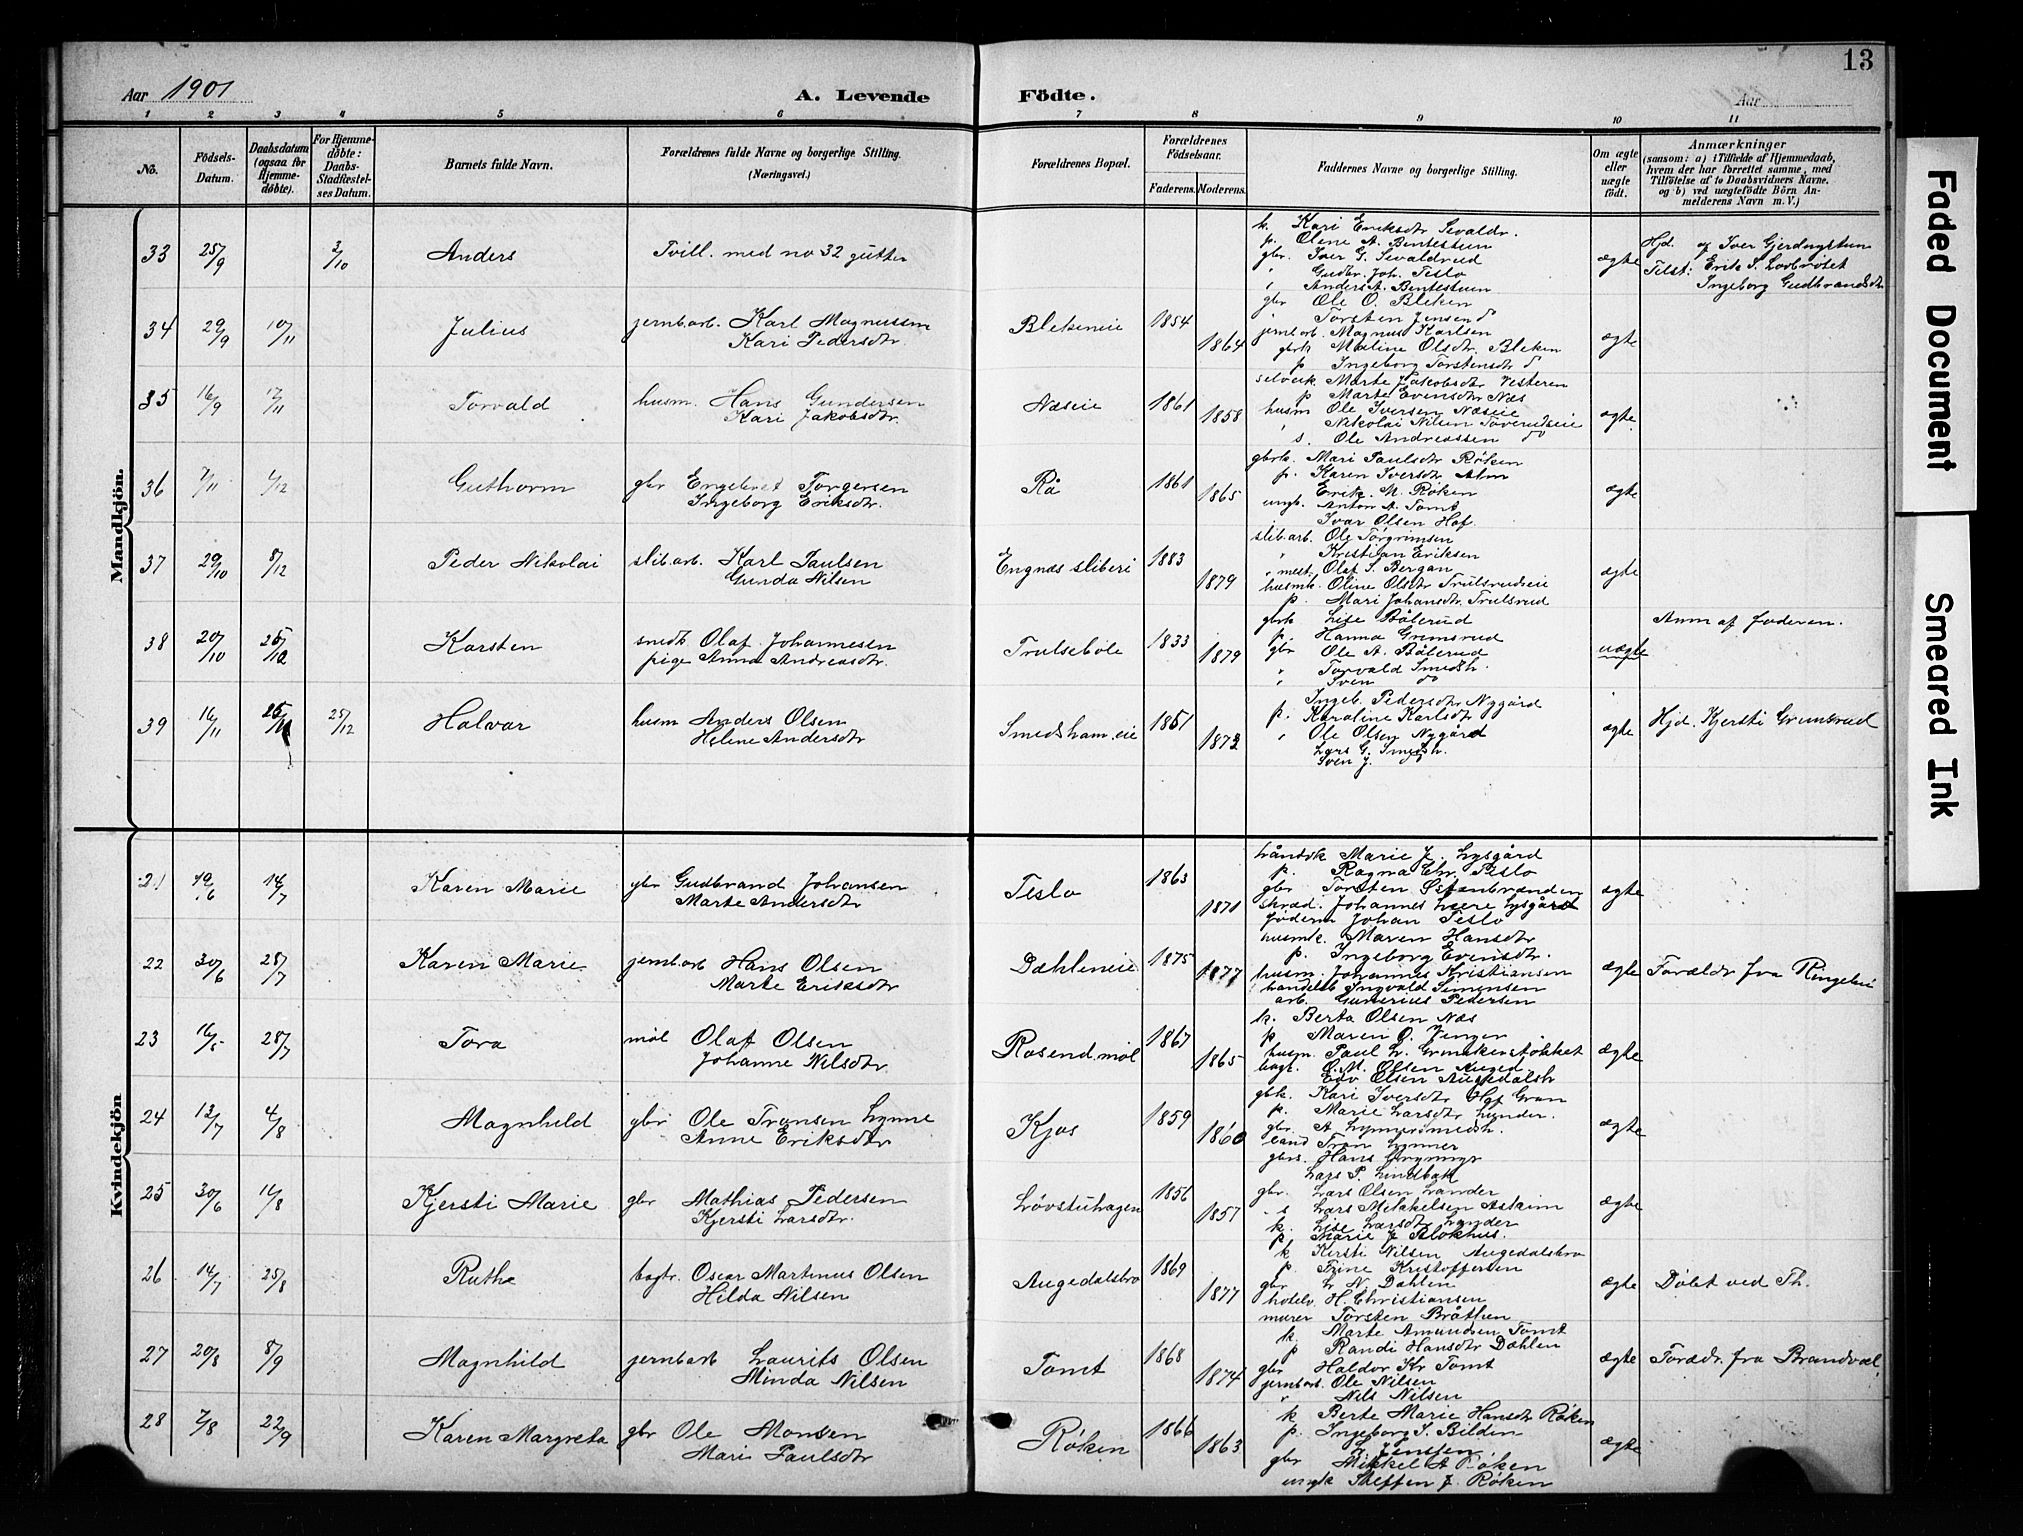 13
Aar 1901
A. Levende Födte.
Aar
1 2 3 4 5 6 7 8 9 10 11
No.
Födsels-Datum.
Daabsdatum (ogsaa for Hjemmedöbte).
For Hjemmedöbte: Daabs-Stadfæstelses Datum.
Barnets fulde Navn.
Forældrenes fulde Navne og borgerlige Stilling. (Næringsvei.)
Forældrenes Bopæl.
Forældrenes Födselsaar.
Faderens. Moderens.
Faddernes Navne og borgerlige Stilling.
Om ægte eller uægte födt.
Anmærkninger
(saasom: a) i Tilfælde af Hjemmedaab, hvem der har forrettet samme, med Tilföielse af to Daabsvidners Navne. og b) ved uægtefödte Börn Anmelderens Navn m. V.)
Mandkjön.
33 25/9 3/10 Anders Tvill. med no 32 gutter
k. Kari Eriksdtr Sevaldr.
p. Olene A. Bentestuen
gbr. Iver G. Sevaldrud
Gudbr. Joh. Teslo
Anders A. Bentestuen
ægte
Hjd. af Iver Gjerdngstuen
Tilst: Erik S. Lovbrøtet
Ingeborg Gudbrandsdtr
34 29/9 10/11 Julius jernb.arb. Karl Magnussen
Kari Pedersdtr
Blekeneie 1854 1864
gbr Ole O. Bleken
Torsten Jensen do
jernb.arb. Magnus Karlsen
gbrk Maline Olsdtr Bleken
p Ingeborg Torstensdtr do
ægte
35 16/9 17/11 Torvald husm. Hans Gundersen
Kari Jakobsdtr
Næseie 1861 1858
selveik. Marte Jakobsdtr Vesteren
p Marte Evensdtr Næs
husm Ole Iversen Næseie
Nikolai Nilsen Toverudseie
s. Ole Andreassen do
ægte
36 7/11 1/12 Guthorm gbr Engebret Torgersen
Ingeborg Eriksdtr.
Rå 1861 1865
gbrk. Mari Paulsdtr Røken
p. Karen Iversdtr Alm
Erik M. Røken
ungk. Anton A. Tomt
Ivar Olsen Hof
ægte
37 29/10 8/12 Peder Nikolai slib.arb. Karl Paulsen
Gunda Nilsen
Engnæs sliberi 1883 1879
slib.arb. Ole Torgrimsen
Kristian Eriksen
mest. Olaf S. Bergan
husmk. Oline Olsdtr Trulsrudseie
p. Mari Johansdtr Trulsrud
ægte
38 20/10 25/12 Karsten smedk Olaf Johannesen
pige Anna Andreasdtr.
Trulsebøle 1833 1879
gbrk Lise Bølerud
p. Hanna Grimsrud
gbr Ole A. Bølerud
Torvald Smedsh.
Sven do
uægte
Anm af faderen.
39 16/11 25/12 Halvar husm Anders Olsen
Helene Andersdtr
Smedsham.eie 1851 1873
Ingeb. Pedersdtr Nygård
p. Karoline Karlsdtr
Ole Olsen Nygård
Lars G. Smedsh.
Sven J. do
ægte
Hjd. Kjersti Grimsrud
Kvindekjön
21 19/6 14/7 Karen Marie gbr Gudbrand Johansen
Marte Andersdtr
Teslo 1863 1871
håndvk Marie J. Lysgård
p. Ragna Chr. Teslo
gbr Torsten Stenbrænden
skræd. Johannes Lysgård
føderm Johan Teslo
ægte
22 30/6 28/7 Karen Marie jernb.arb Hans Olsen
Marte Eriksdtr
Dæhleneie 1875 1877
husmk. Maren Hansdtr
p. Ingeborg Evensdtr.
husm. Johannes Kristiansen
handelsb Ingvald Simensen
arb. Gunerius Pedersen
ægte Forældr fra Ringebu
23 16/5 28/7 Tora møl Olaf Olsen
Johanne Nilsdtr
Rosend. møl 1867 1865
k. Berta Olsen Næs
p Maren O. Vinger
husm. Paul L. Grinakerstokket
bagr. O. M. Olsen Auged.
Edv Olsen Augedalsh
ægte
24 13/7 4/8 Magnhild gbr Ole Transen Lynne
Anne Eriksdtr
Kjos 1859 1860
gbk. Kari Iversdtr Hof Gran
p. Marie Larsdtr Lunder.
gbr. A. Lynnersmedsh.
cand Tron Lynner
gbrs. Hans Grymyr
ægte
25 30/6 14/8 Kjersti Marie gbr Mathias Pedersen
Kjersti Larsdtr.
Løvstuhagen 1856 1857
Lars P. Lindbak
gbr. Lars Olsen Lander
s Lars Mikkelsen Askim
k. Lise Larsdtr Lander
p. Marie J Blokhus.
ægte
26 14/7 25/8 Ruth bagtr. Oscar Martinus Olsen
Hilda Nilsen
Augedalsbro 1869 1877
k Kersti Nilsen Augedalsbro
p Trine Kristoffersen
gbr L. N. Dæhlen
hotelv. H. Christiansen
murer Torsten Bråthen
ægte Døbt ved Th.
27 20/8 8/9 Magnhild jernb.arb Laurits Olsen
Minda Nilsen
Tomt 1868 1874
k. Marte Amundsen Tomt
p Randi Hansdtr Dæhlen
gbr Haldor Kr Tomt
jernb.arb. Ole Nilsen
Nils Nilsen
ægte Forædr. fra Brandval
28 7/8 22/9 Karen Margreta gbr Ole Monsen
Mari Paulsdtr
Røken 1866 1863
k Berte Marie Hansdtr Røken
p. Ingeborg S. Bilden
L. Jensen
gbr Mikkel A Røken
ungk Steffen J. Røken
ægte
Faded Document
Smeared Ink